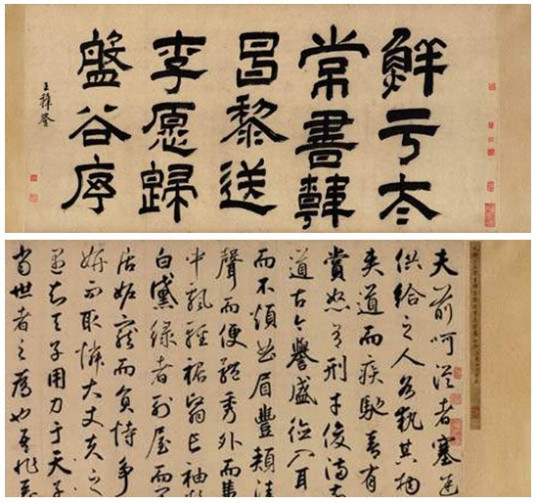 鮮于太
常書韓
昌黎送
李愿歸
盤谷序
王穉登
夫前呵從者塞途
供給之人各執其物
夾道而疾馳喜有
賞怒有刑才俊滿前
道古今譽盛德入耳
而不煩曲眉豐頰清
聲而便體秀外而惠
中飄輕裾翳長袖粉
白黛綠者列屋而閒
居妬寵而負恃爭
妍而取憐大丈夫之
遇知天子用力于天子
當世者之為也吾非惡